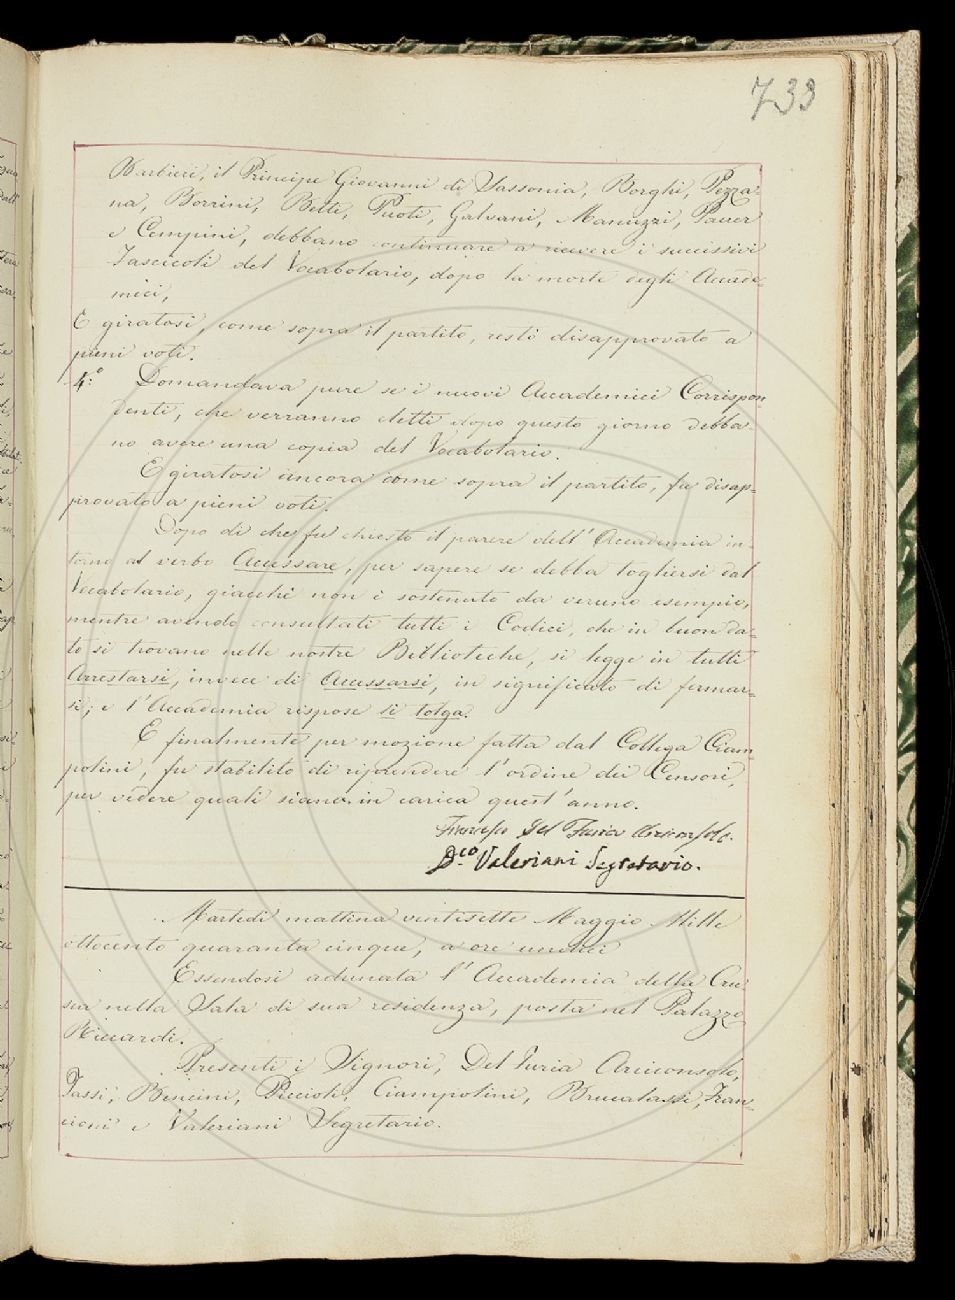 733
Barbieri, il Principe Giovanni di Sassonia, Borghi, Pezza-
na, Borrini, Betti, Puoti, Galvani, Manuzzi, Pacver
e Cempini, debbano continuare a ricevere i successivi
Fascicoli del Vocabolario, dopo la morte degli Accade-
mici,
E giratosi, come sopra il partito, restò disapprovato a
pieni voti.
4.° Domandava pure se i nuovi Accademici Corrispon
denti, che verranno eletti dopo questo giorno debba-
no avere una copia del Vocabolario.
E giratosi ancora come sopra il partito, fu disap-
provato a pieni voti.
Dopo di che fu chiesto il parere dell'Accademia in-
torno al verbo Acussare, per sapere se debba togliersi dal
Vocabolario, giacchè non è sostenuto da veruno esempio,
mentre avendo consultati tutti i Codici, che in buon da-
to si trovano nelle nostre Biblioteche, si legge in tutti
Arrestarsi, invece di Acussarsi, in significato di fermar-
si; e l'Accademia rispose si tolga.
E finalmente per mozione fatta dal Collega Ciam-
polini, fu stabilito di riprendere l'ordine dei Censori,
per vedere quali siano in carica quest'anno.
Francesco Del Furia Arciconsolo.
D.co Valeriani Segretario.
Martedì mattina ventisette Maggio Mille
ottocento quaranta cinque, a ore undici
Essendosi adunata l'Accademia della Cru
sca nella Sala di sua residenza, posta nel Palazzo
Riccardi.
Presenti i Signori, Del Furia Arciconsolo,
Tassi, Bencini, Piccioli, Ciampolini, Brucalassi, Fran-
cioni e Valeriani Segretario.